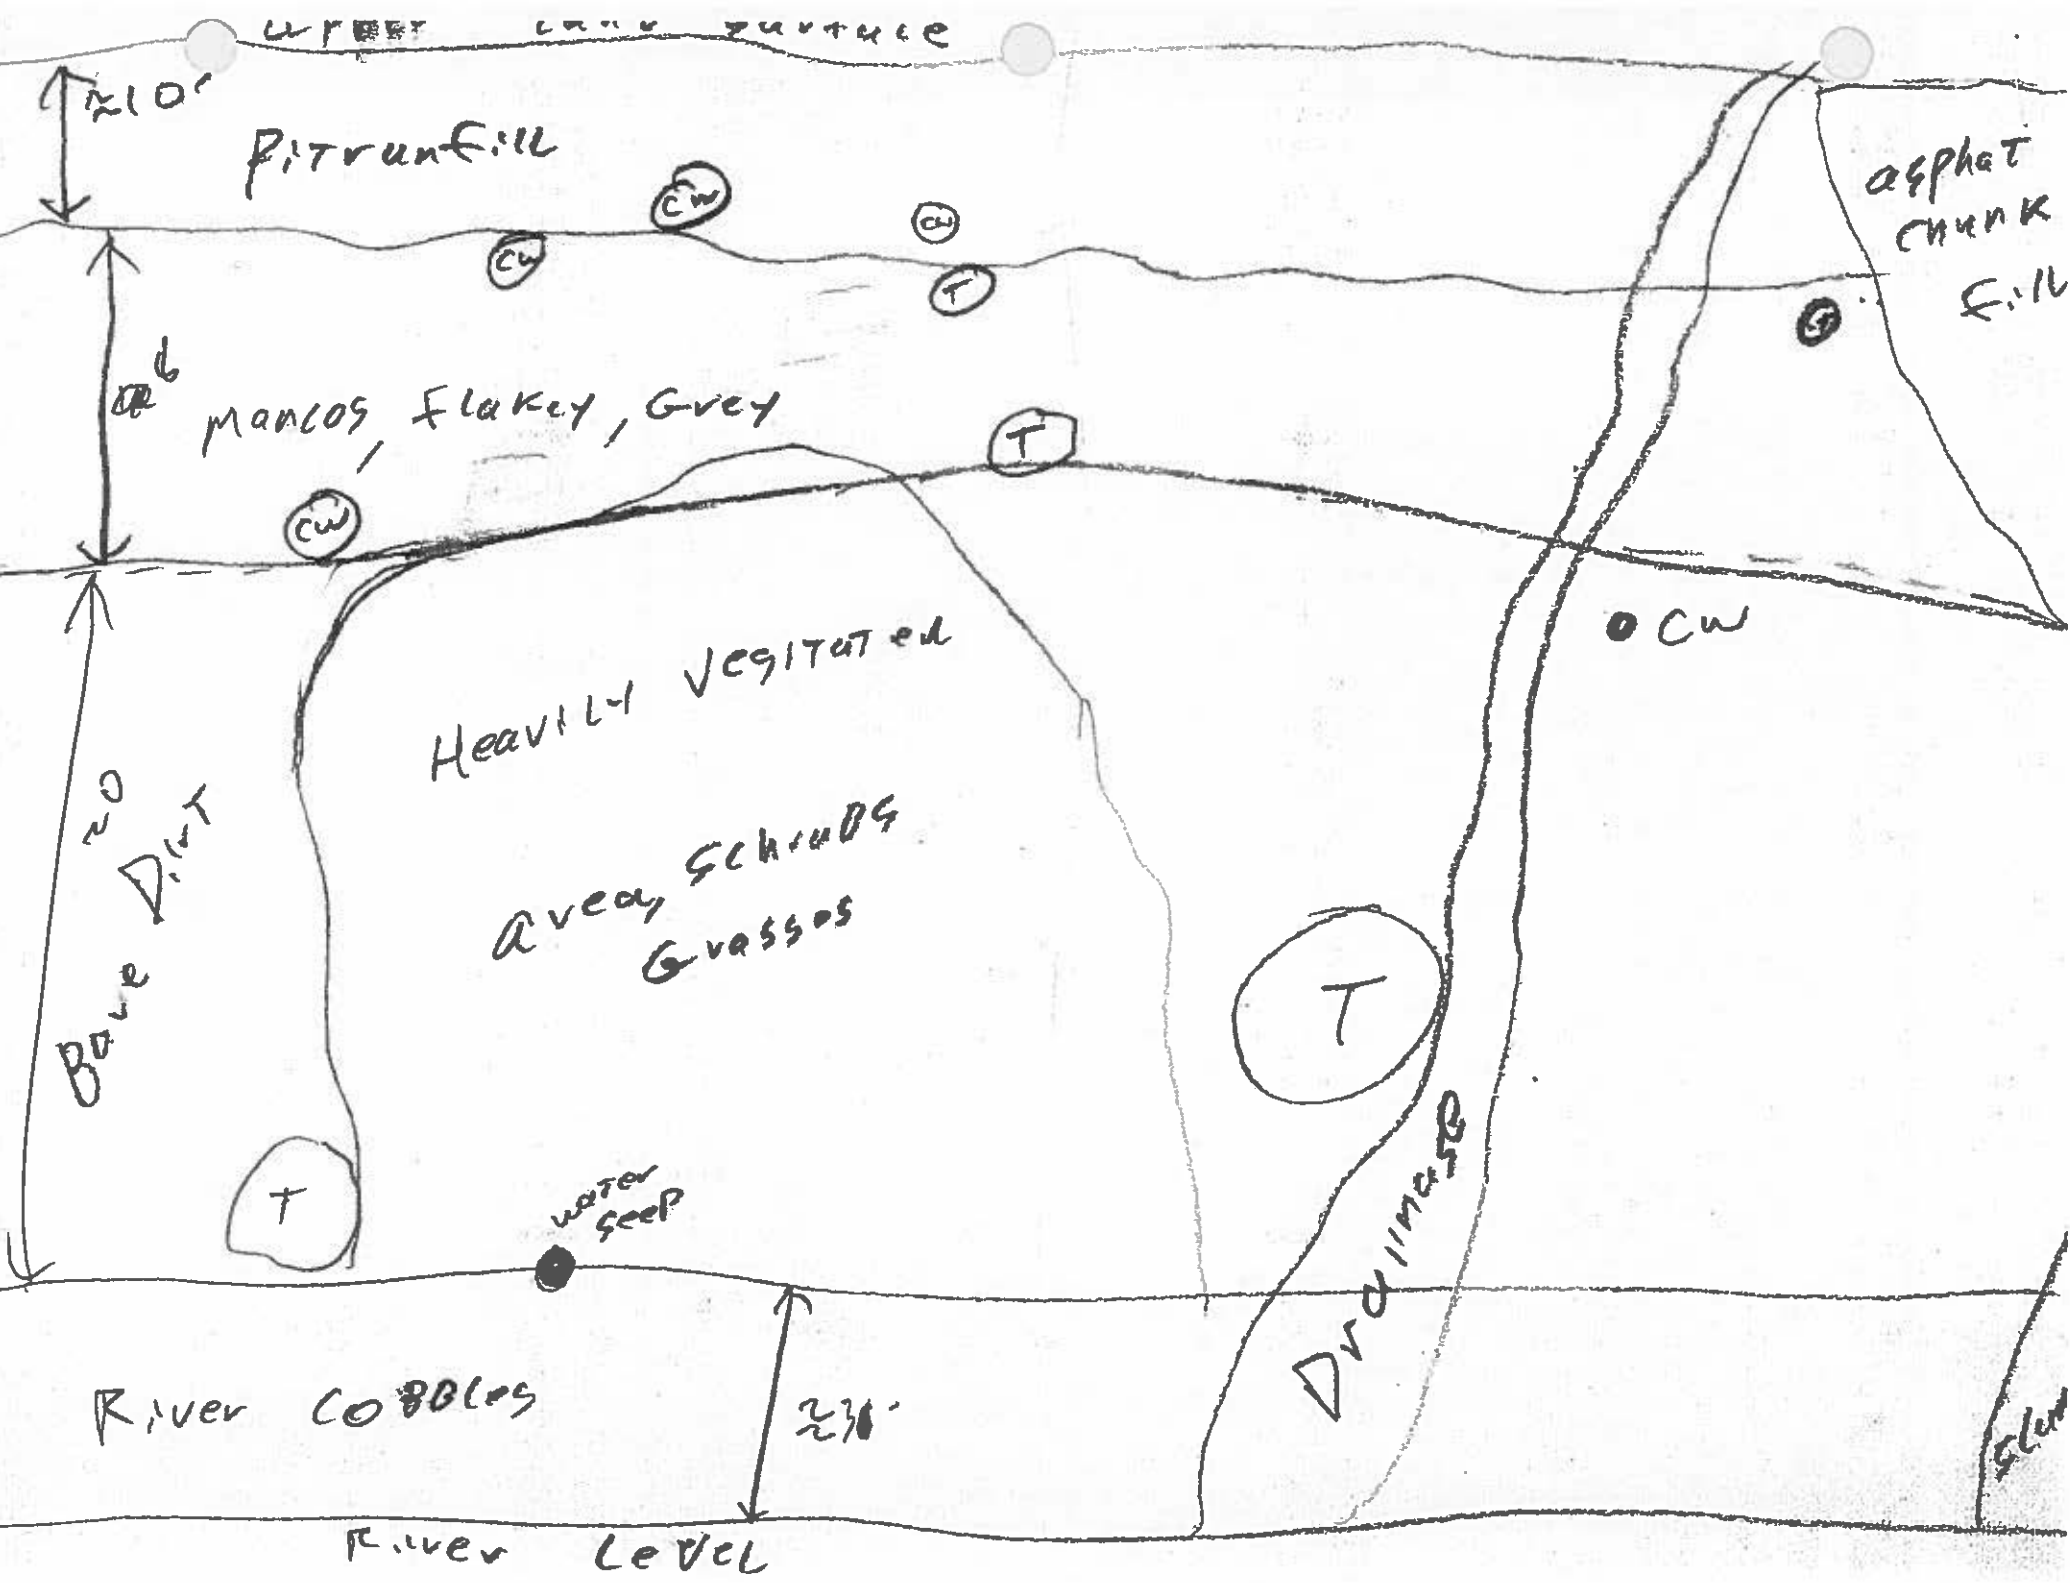 upper land surface
≈10'
Pitrunfill
CW
CW
CW
T
asphat
chunk
fill
G
Mancos, flakey, Grey
T
CW
CW
Heavily Vegitated
area, schrubs
Grasses
Bare Dirt
T
T
water
seep
Drainage
River Cobbles
River Level